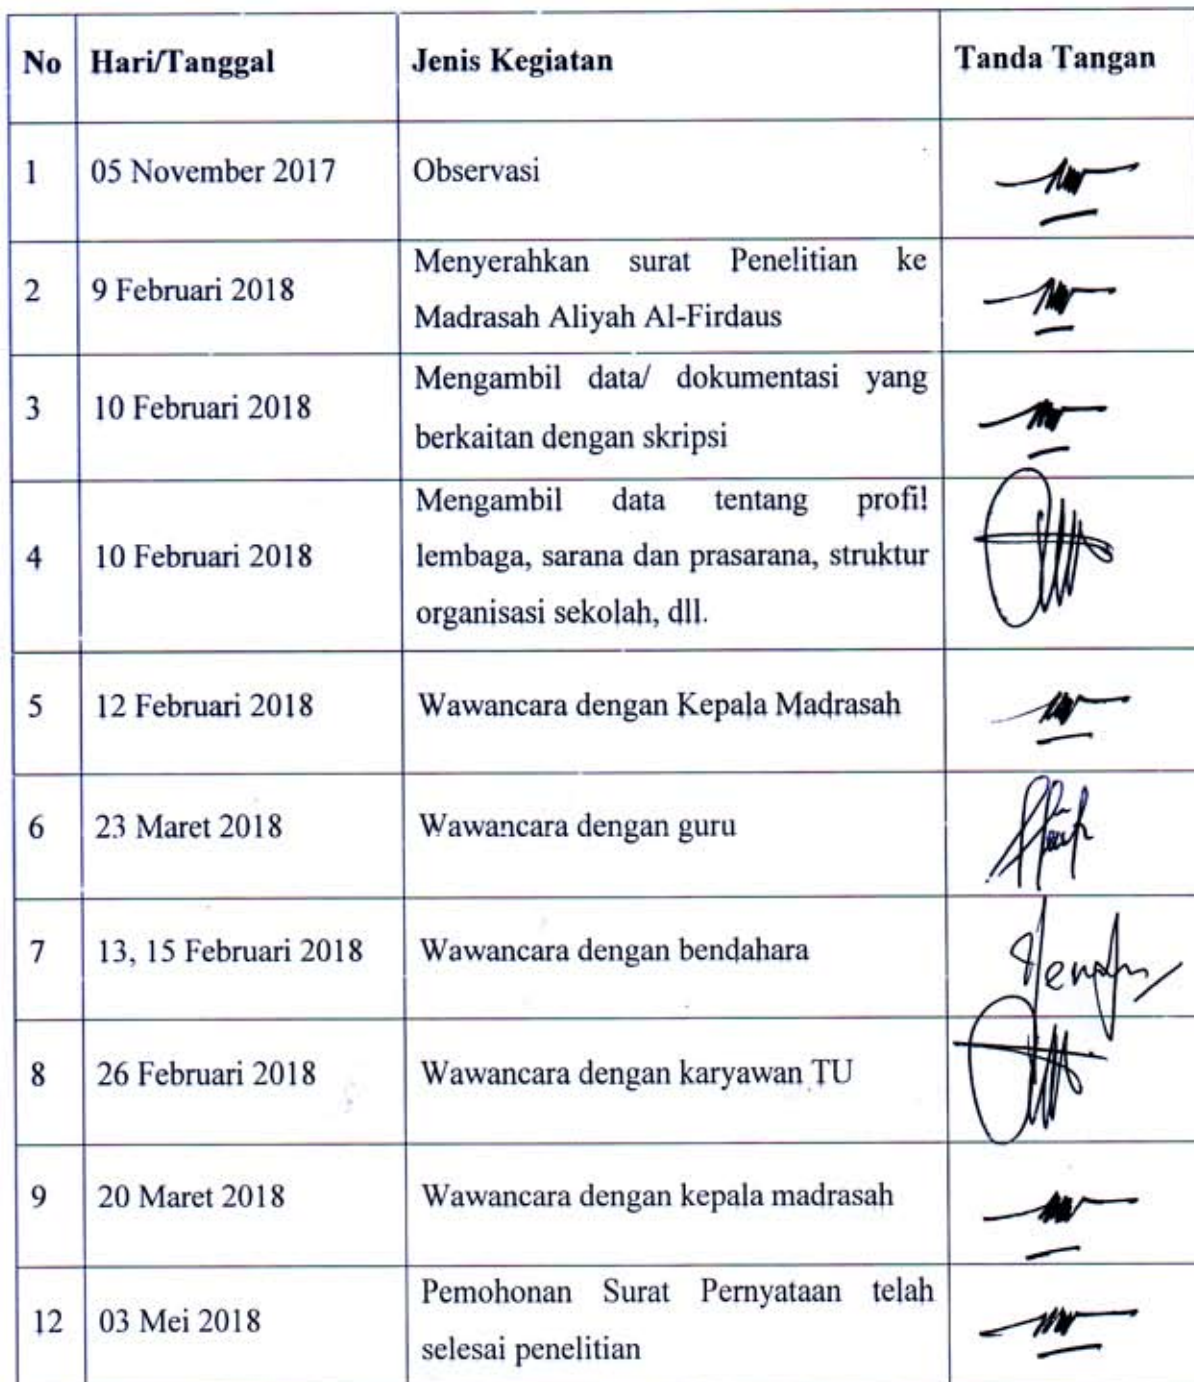 No Hari/Tanggal Jenis Kegiatan Tanda Tangan
1 05 November 2017 Observasi
2 9 Februari 2018 Menyerahkan surat Penelitian ke
Madrasah Aliyah Al-Firdaus
3 10 Februari 2018 Mengambil data/ dokumentasi yang
berkaitan dengan skripsi
4 10 Februari 2018 Mengambil data tentang profil
lembaga, sarana dan prasarana, struktur
organisasi sekolah, dll.
5 12 Februari 2018 Wawancara dengan Kepala Madrasah
6 23 Maret 2018 Wawancara dengan guru
7 13, 15 Februari 2018 Wawancara dengan bendahara
8 26 Februari 2018 Wawancara dengan karyawan TU
9 20 Maret 2018 Wawancara dengan kepala madrasah
12 03 Mei 2018 Pemohonan Surat Pernyataan telah
selesai penelitian